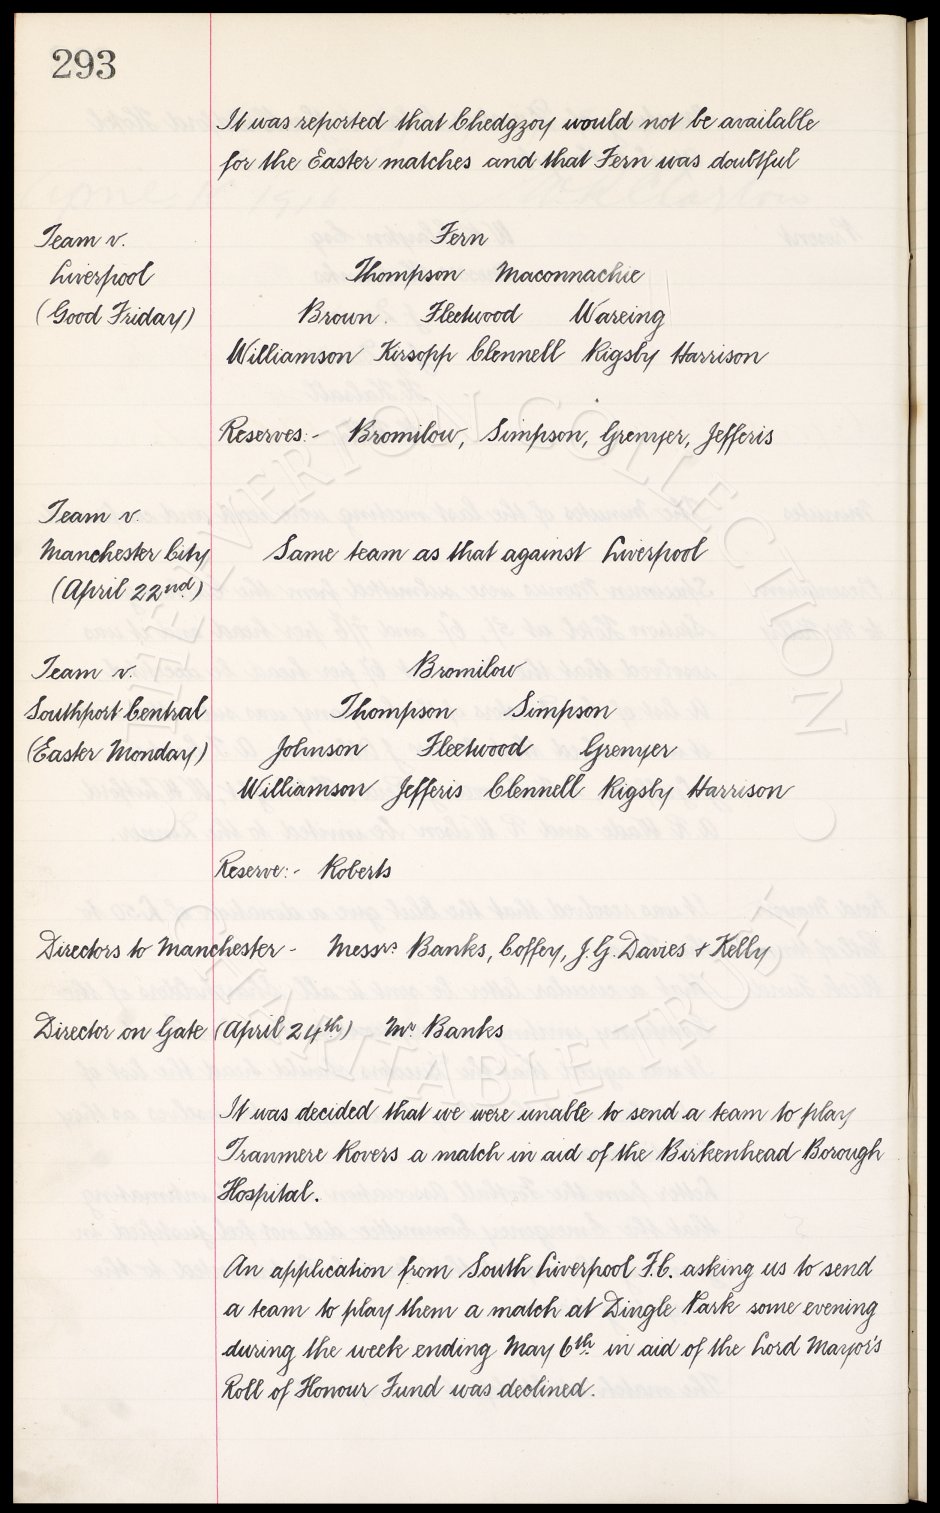 293
It was reported that Chedgzoy would not be available
for the Easter matches and that Fern was doubtful
Team v. Fern
Liverpool Thompson Maconnachie
(Good Friday) Brown. Fleetwood Wareing
Williamson Kirsopp Clennell Rigsby Harrison
Reserves:- Bromilow, Simpson, Grenyer, Jefferis
Team v.
Manchester City Same team as that against Liverpool
(April 22nd)
Team v. Bromilow
Southport Central Thompson Simpson
(Easter Monday) Johnson Fleetwood Grenyer
Williamson Jefferis Clennell Rigsby Harrison
Reserve:- Roberts
Directors to Manchester - Messrs. Banks, Coffey, J.G. Davies & Kelly
Director on Gate (April 24th) Mr Banks
It was decided that we were unable to send a team to play
Tranmere Rovers a match in aid of the Birkenhead Borough
Hospital.
An application from South Liverpool F.C. asking us to send
a team to play them a match at Dingle Park some evening
during the week ending May 6th. in aid of the Lord Mayor's
Roll of Honour Fund was declined.
THE EVERTON COLLECTION
CHARITABLE TRUST